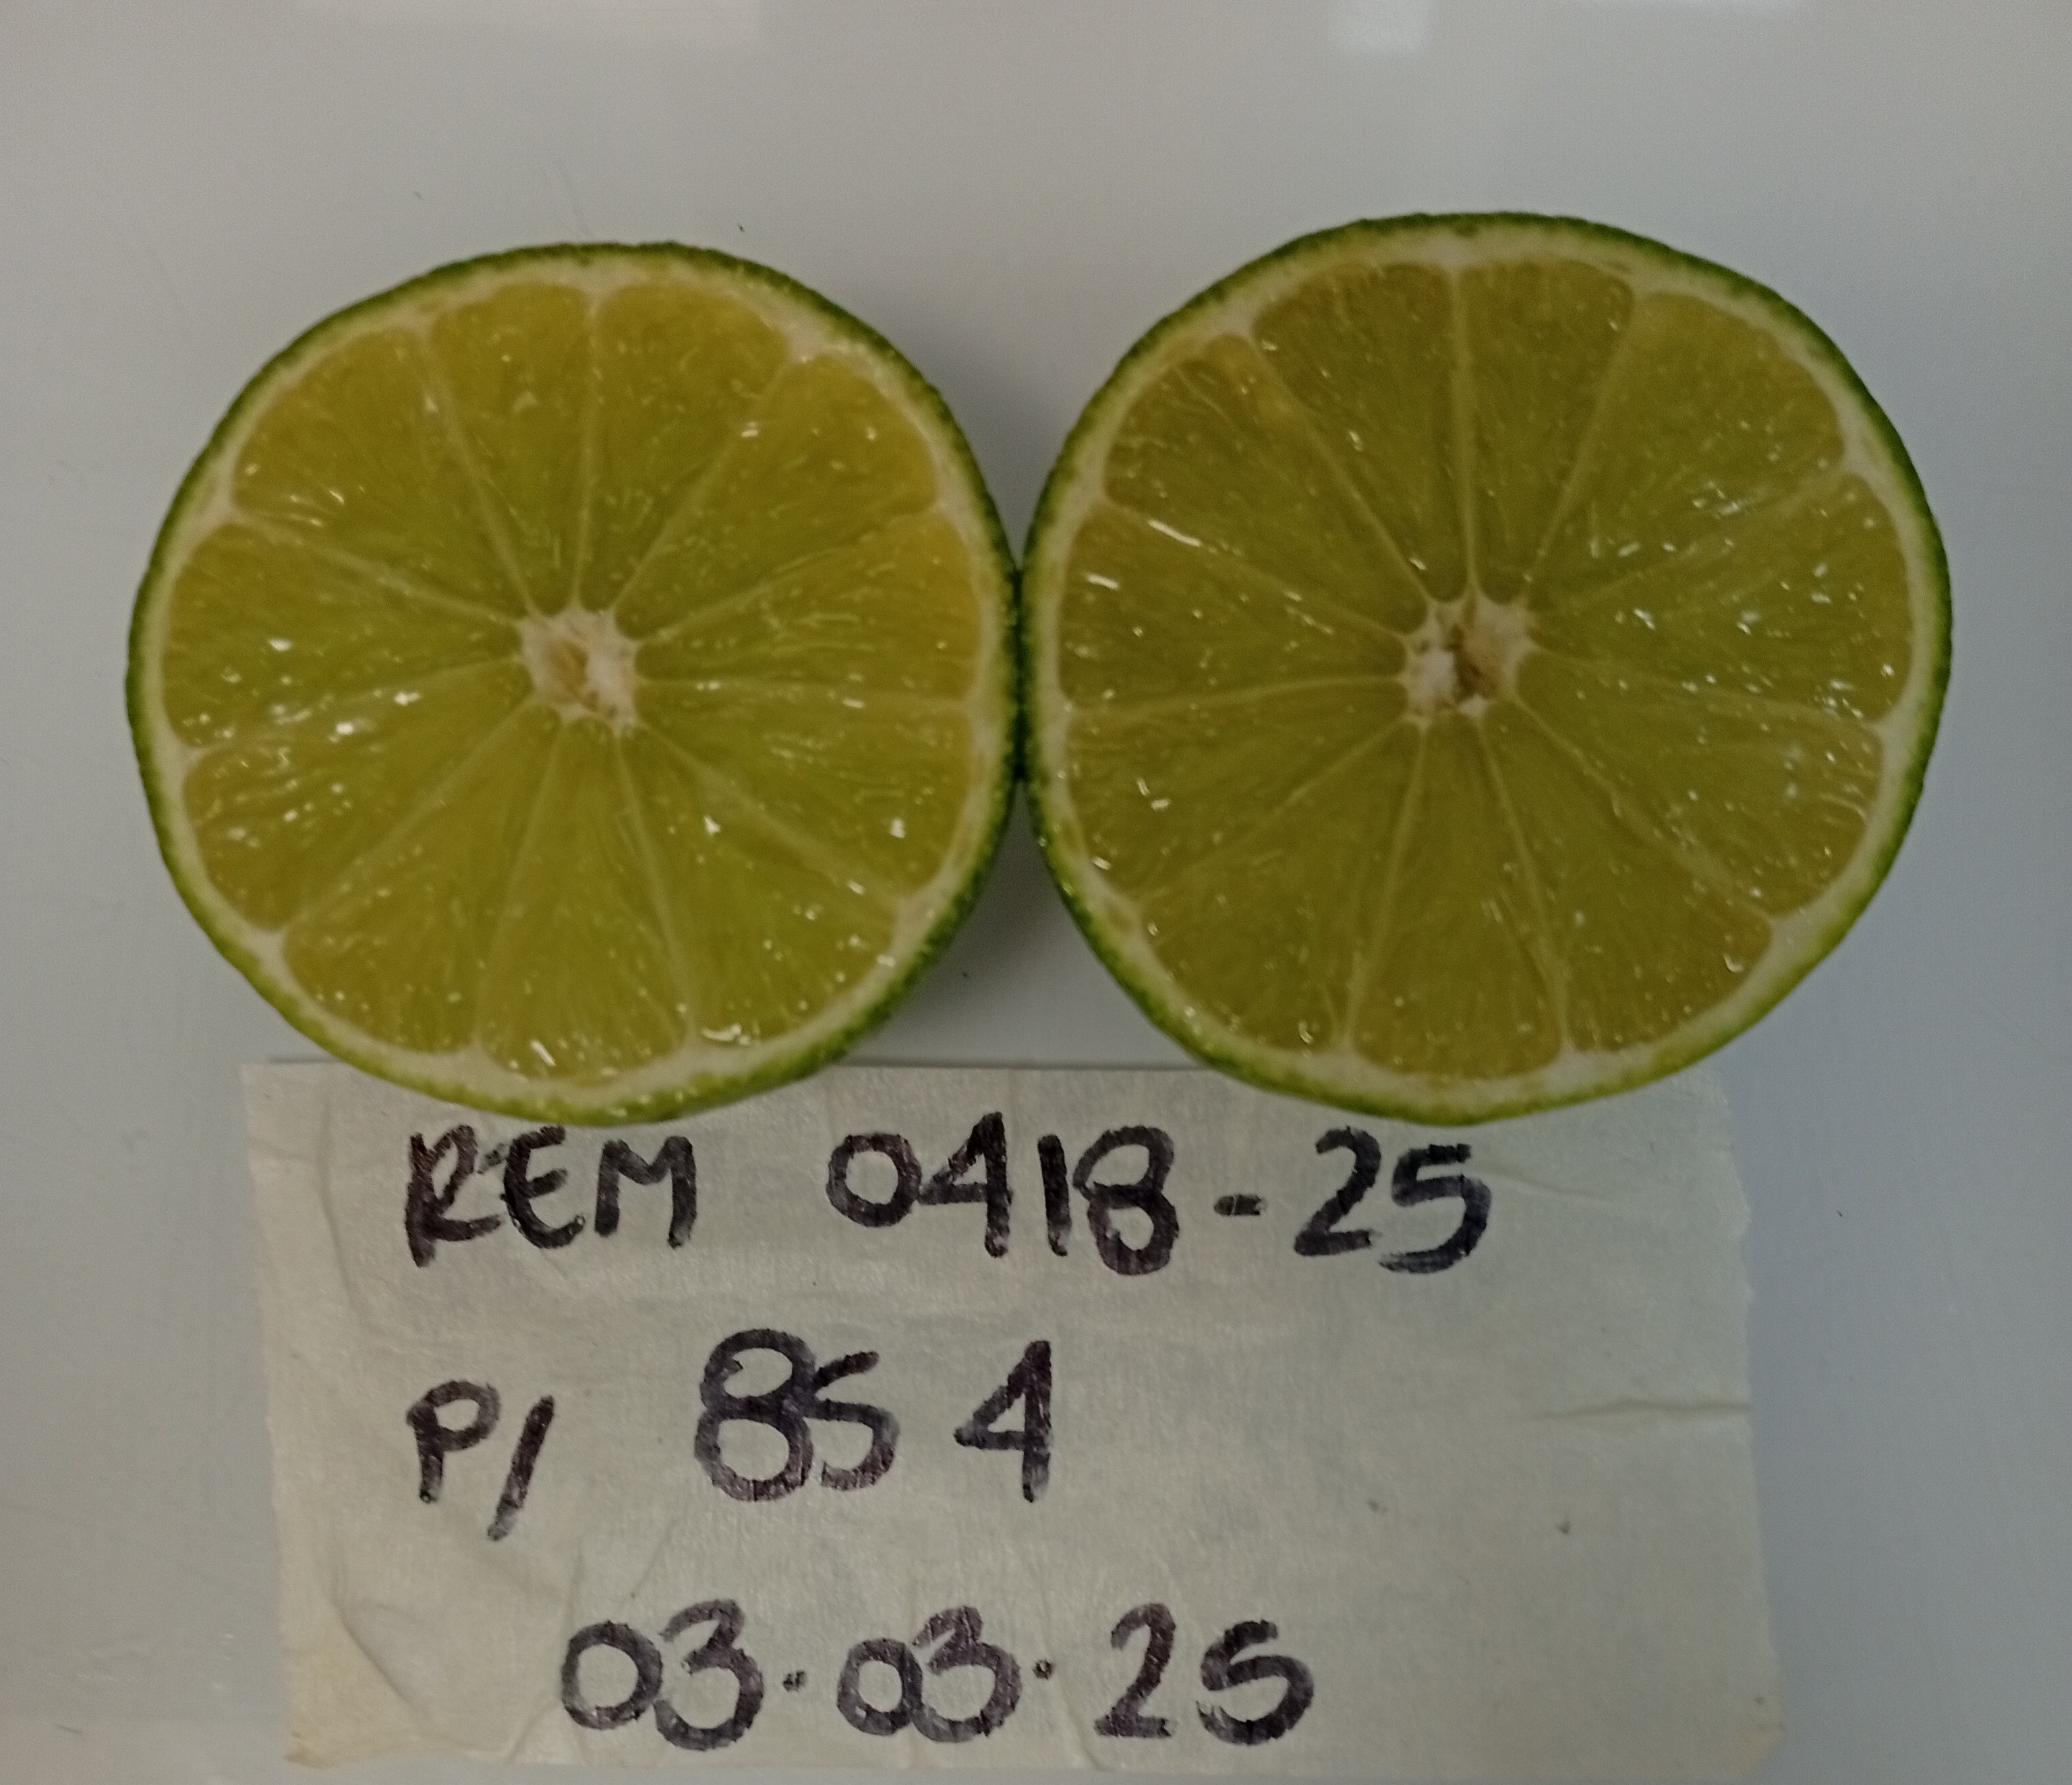 REM 0418-25
P/ 854
03.03.25